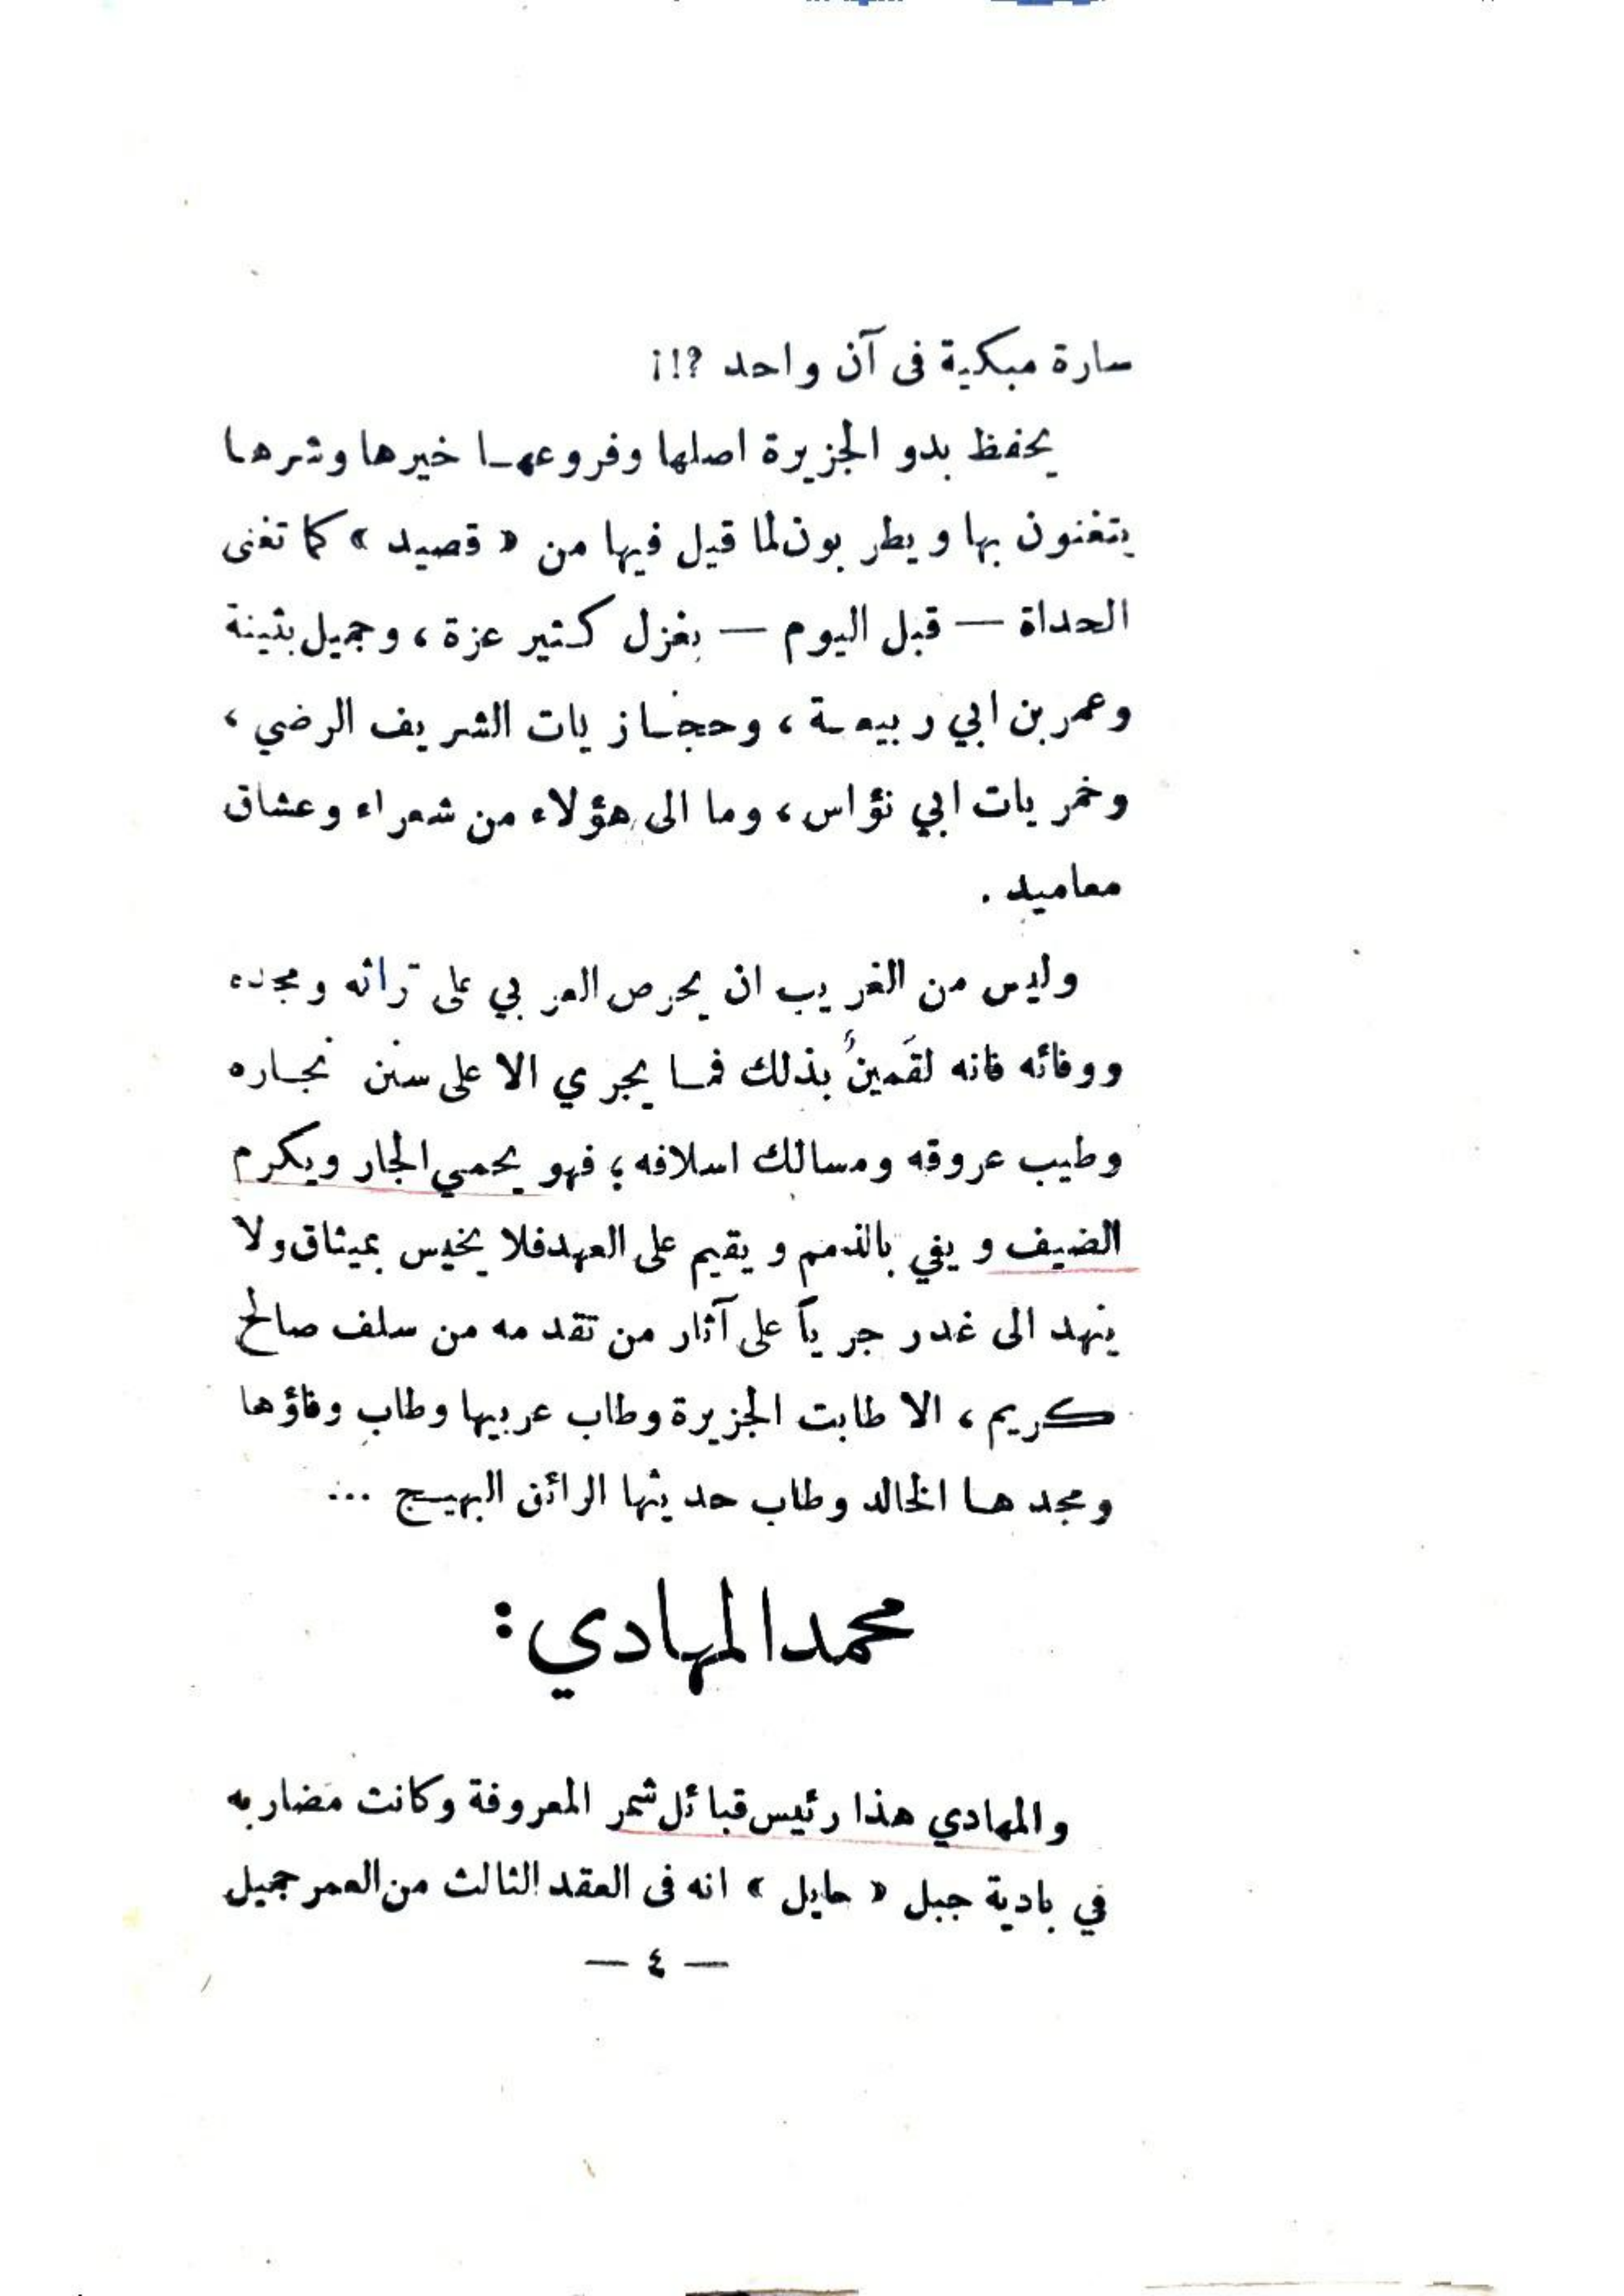 سارة مبكية فى آن واحد ?!¡
يحفظ بدو الجزيرة اصلها وفروعهـا خيرها وشرها
يتغنون بها ويطربون لما قيل فيها من « قصيد » كما تغنى
الحداة — قبل اليوم — بغزل كثير عزة ، وجميل بثينة
وعمر بن ابي ربيعـة ، وحجـازيات الشريف الرضي ،
وخمريات ابي نؤاس ، وما الى هؤلاء من شعراء وعشاق
معاميد .
وليس من الغريب ان يحرص العربي على تراثه ومجده
ووفائه فانه لقَمينٌ بذلك فمـا يجري الا على سنن نجـاره
وطيب عروقه ومسالك اسلافه ؛ فهو يحمي الجار ويكرم
الضيف ويفي بالذمم ويقيم على العهد فلا يخيس بميثاق ولا
ينهد الى غدر جرياً على آثار من تقدمه من سلف صالح
كريم ، الا طابت الجزيرة وطاب عربيها وطاب وفاؤها
ومجدهـا الخالد وطاب حديثها الرائق البهيـج ...
محمد المهادي :
والمهادي هذا رئيس قبائل شمر المعروفة وكانت مضاربه
في بادية جبل « حايل » انه فى العقد الثالث من العمر جميل
— ٤ —